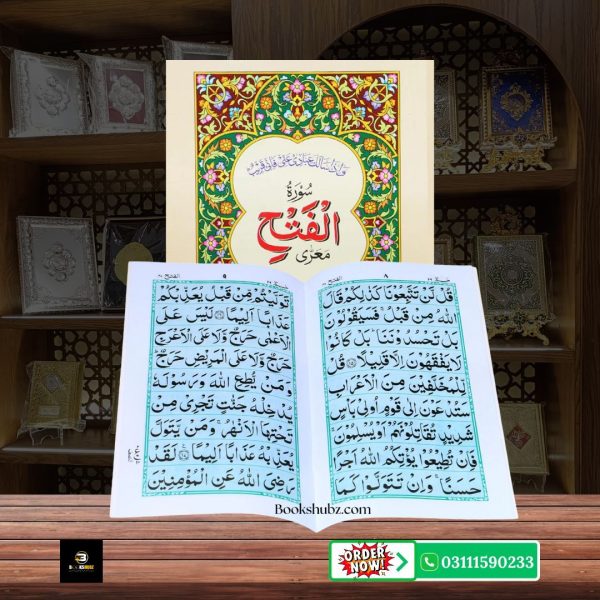 وَاِذَا سَاَلَكَ عِبَادِیْ عَنِّیْ فَاِنِّیْ قَرِیْبٌ
سُوْرَةُ
اَلْفَتْحِ
مَعَرّٰی
٨
قُلْ لَّنْ تَتَّبِعُوْنَا كَذٰلِكُمْ قَالَ
اللّٰهُ مِنْ قَبْلُ ۚ فَسَيَقُوْلُوْنَ
بَلْ تَحْسُدُوْنَنَا ؕ بَلْ كَانُوْا
لَا يَفْقَهُوْنَ اِلَّا قَلِيْلًا ۝۱۵ قُلْ
لِّلْمُخَلَّفِيْنَ مِنَ الْاَعْرَابِ
سَتُدْعَوْنَ اِلٰى قَوْمٍ اُولِيْ بَاْسٍ
شَدِيْدٍ تُقَاتِلُوْنَهُمْ اَوْ يُسْلِمُوْنَ ۚ
فَاِنْ تُطِيْعُوْا يُؤْتِكُمُ اللّٰهُ اَجْرًا
حَسَنًا ۚ وَاِنْ تَتَوَلَّوْا كَمَا
الفتح
٩
تَوَلَّيْتُمْ مِّنْ قَبْلُ يُعَذِّبْكُمْ
عَذَابًا اَلِيْمًا ۝۱۶ لَيْسَ عَلَى
الْاَعْمٰى حَرَجٌ وَّلَا عَلَى الْاَعْرَجِ
حَرَجٌ وَّلَا عَلَى الْمَرِيْضِ حَرَجٌ ؕ
وَمَنْ يُّطِعِ اللّٰهَ وَرَسُوْلَهٗ
يُدْخِلْهُ جَنّٰتٍ تَجْرِيْ مِنْ
تَحْتِهَا الْاَنْهٰرُ ۚ وَمَنْ يَّتَوَلَّ
يُعَذِّبْهُ عَذَابًا اَلِيْمًا ۝۱۷ لَقَدْ
رَضِيَ اللّٰهُ عَنِ الْمُؤْمِنِيْنَ
Bookshubz.com
ORDER
NOW!
03111590233